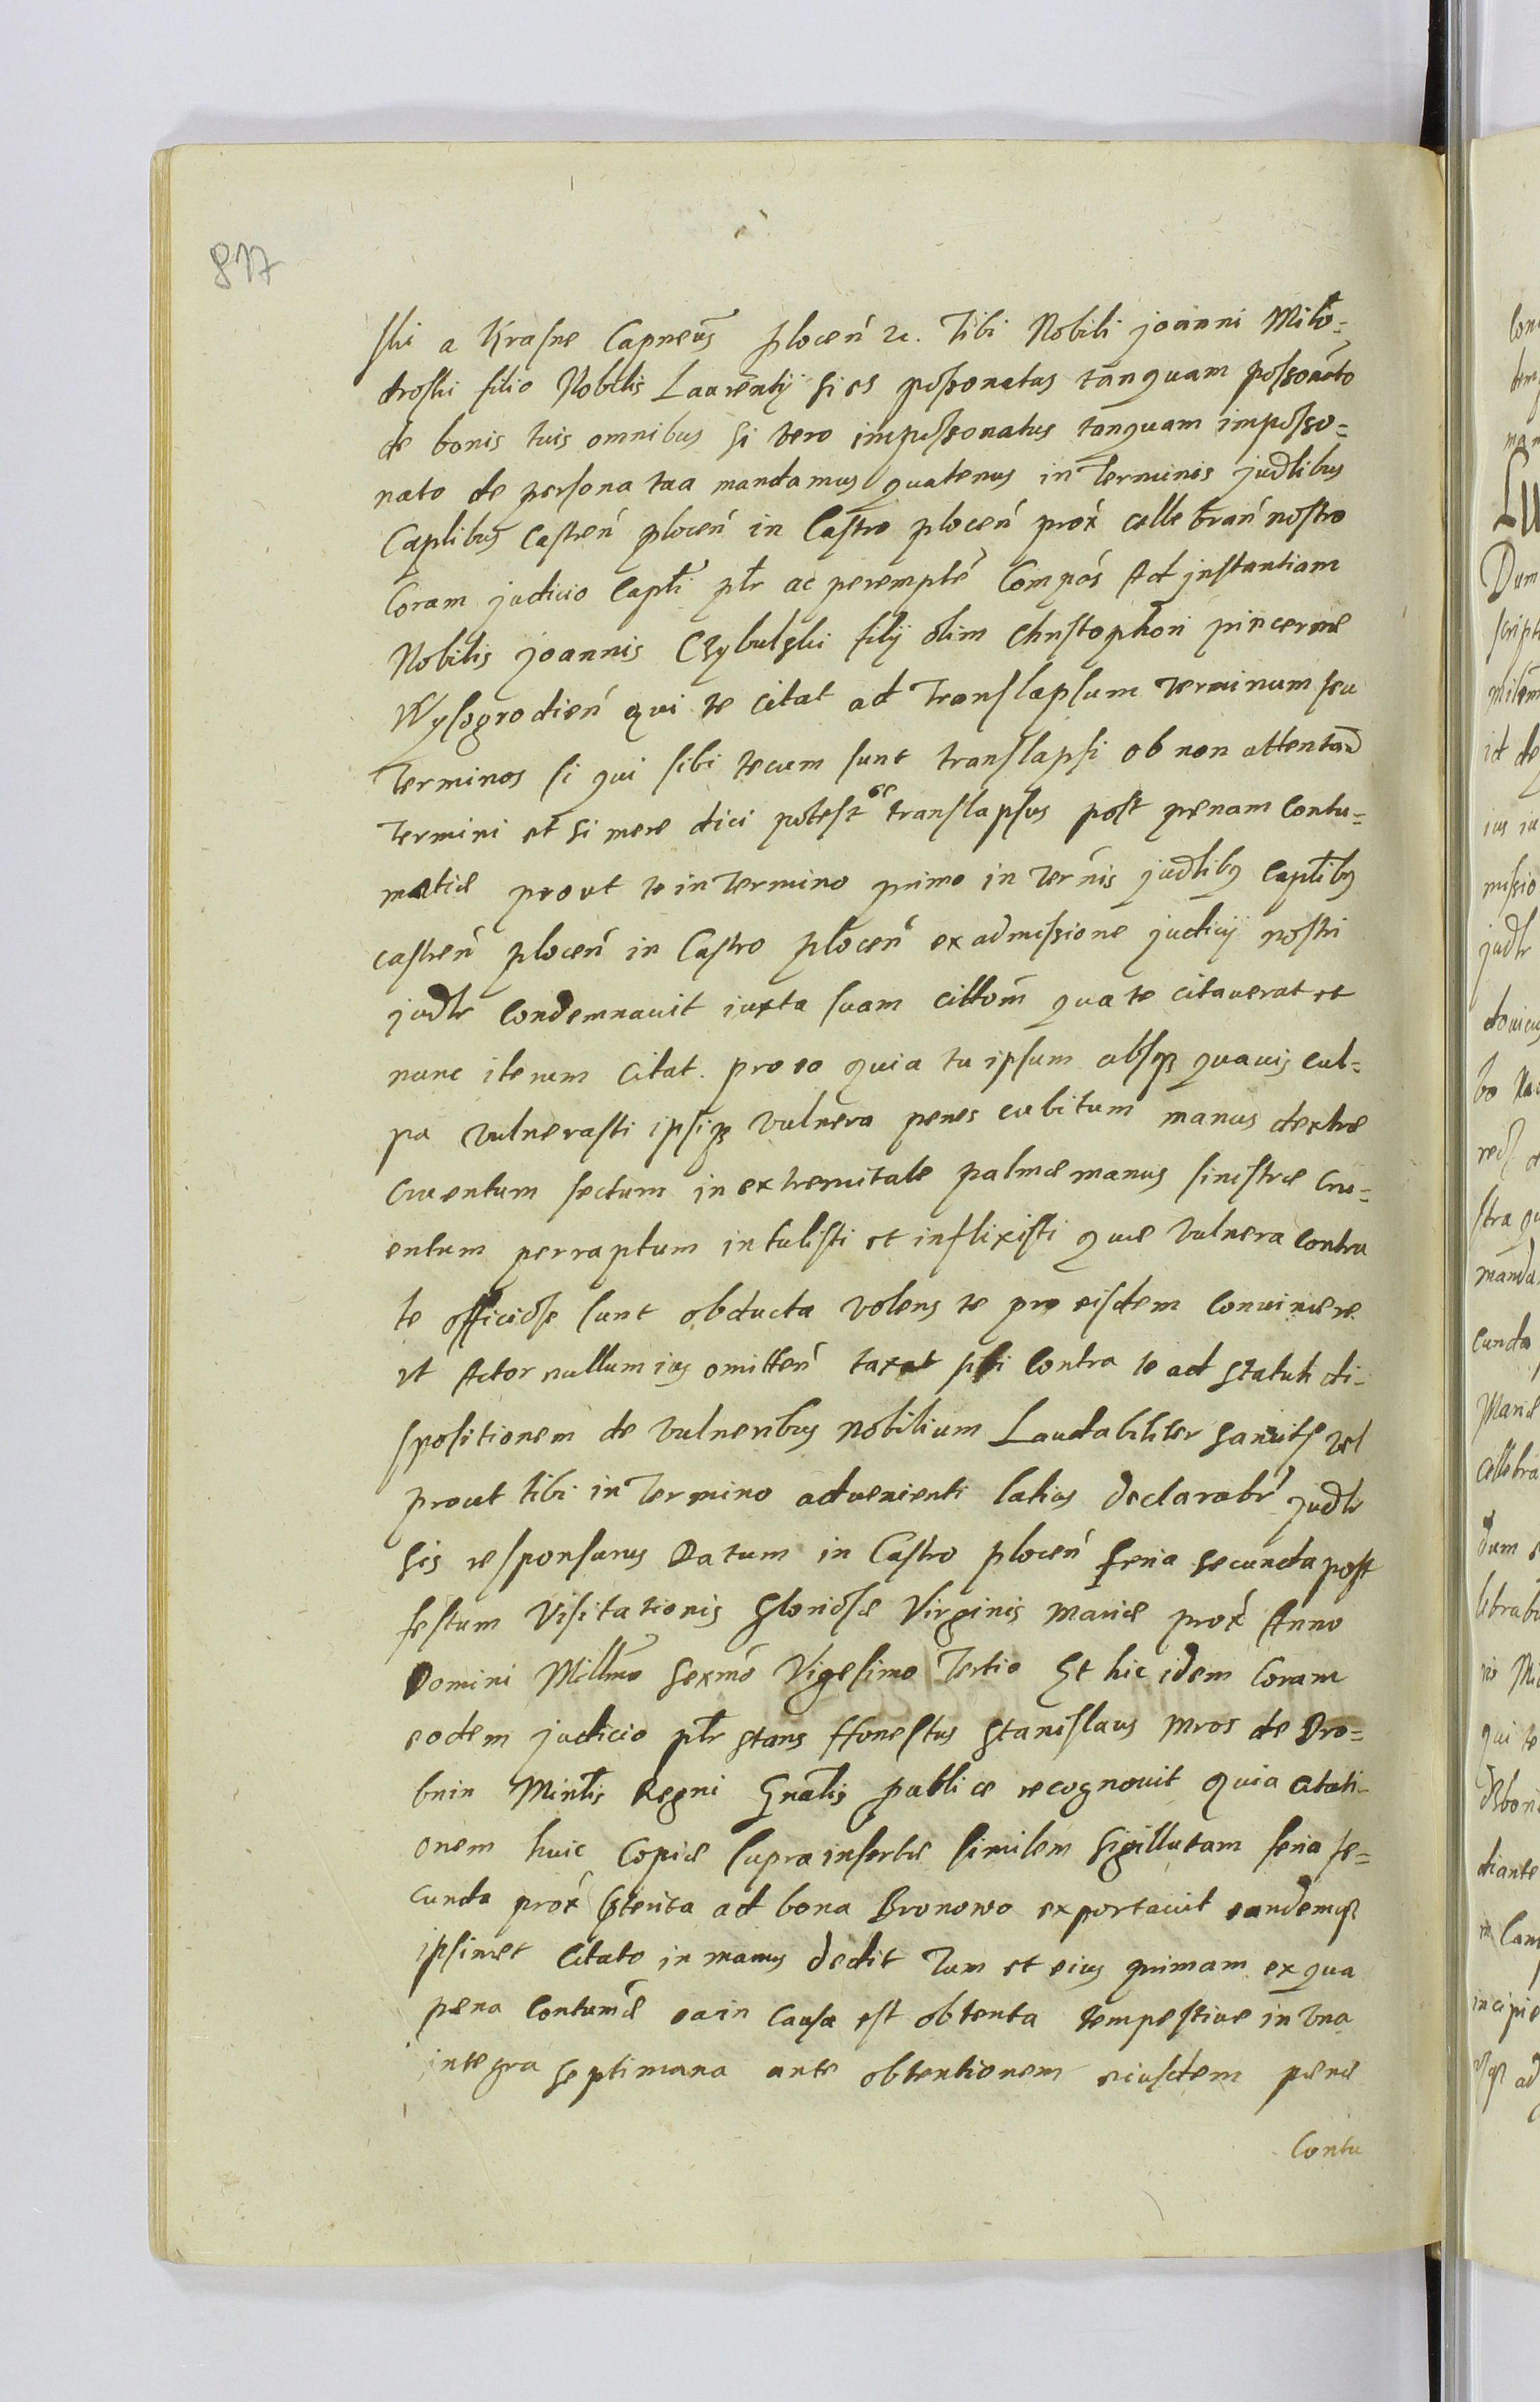 817
ski a Krasne Capneus plocen etc. Tibi Nobili joanni Milo=
droski filio Nobilis Laurentij si es possonatus tanquam possonato
de bonis tuis omnibus si vero impossonatus tanquam imposso=
nato de persona tua mandamus quatenus in Terminis judlibus
Caplibus Castren plocen in Castro plocen prox cellebran nostro
Coram judicio Capli plr ac perempte Compas Ad jnstantiam
Nobilis joannis Czybulski filij olim Christophori pincernæ
Wysogrodien qui te citat ad Translapsum Terminum seu
Terminos si qui sibi tecum sunt translapsi ob non attentad
Termini et si mere dici potest translapsus post penam Contu=
matiæ prout te in Termino primo in Ternis judlibus Caplibus
castren plocen in Castro plocen ex admissione judicij nostri
judlr Condemnauit iuxta suam cittom qua te citauerat et
nunc iterum Citat. pro eo quia tu ipsum absq quauis cul=
pa vulnerasti ipsiq vulnera penes cubitum manus dextræ
Cruentum sectum in extremitate palmæ manus sinistræ Cru=
entum perraptum intulisti et inflixisti quæ vulnera Contra
te officiose sunt obducta volens te pro eisdem Conuincere
vt Actor nullum ius omitten taxat sibi Contra te ad Statuti di=
spositionem de vulneribus nobilium Laudabiliter sancitj vel
prout tibi in Termino aduenienti latius declarabr judlr
sis responsurus Datum in Castro plocen feria secunda post
festum Visitationis Gloriosæ Virginis mariæ prox Anno
Domini Millmo sexmo Vigesimo Tertio Et hic idem Coram
eodem judicio plr stans Honestus Stanislaus Mros de Dro=
bnin Mintlis Regni Gnalis publice recognouit quia citati-
onem huic Copiæ supra insertæ similem sigillatam feria se=
cunda prox pterita ad bona Bronowo exportauit eandemq
ipsimet Citato in manus dedit Tum et eius primam ex qua
pena Contumæ ea in Causa est obtenta tempestiue in vna
integra septimana ante obtentionem eiusdem penæ
Contu